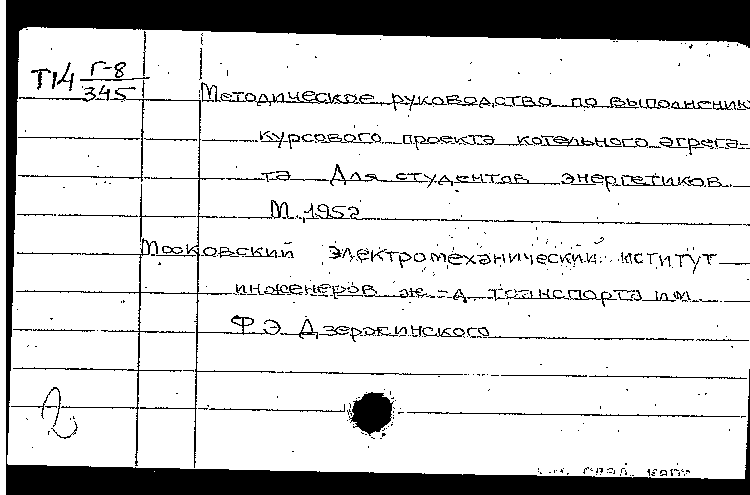 Т14 Г-8
345
Методическое руководство по выполнению
курсового проекта котельного агрега-
та Для студентов энергетиков
М, 1952
Московский электромеханический иститут
инженеров ж-д транспорта им
Ф.Э. Дзержинского
2